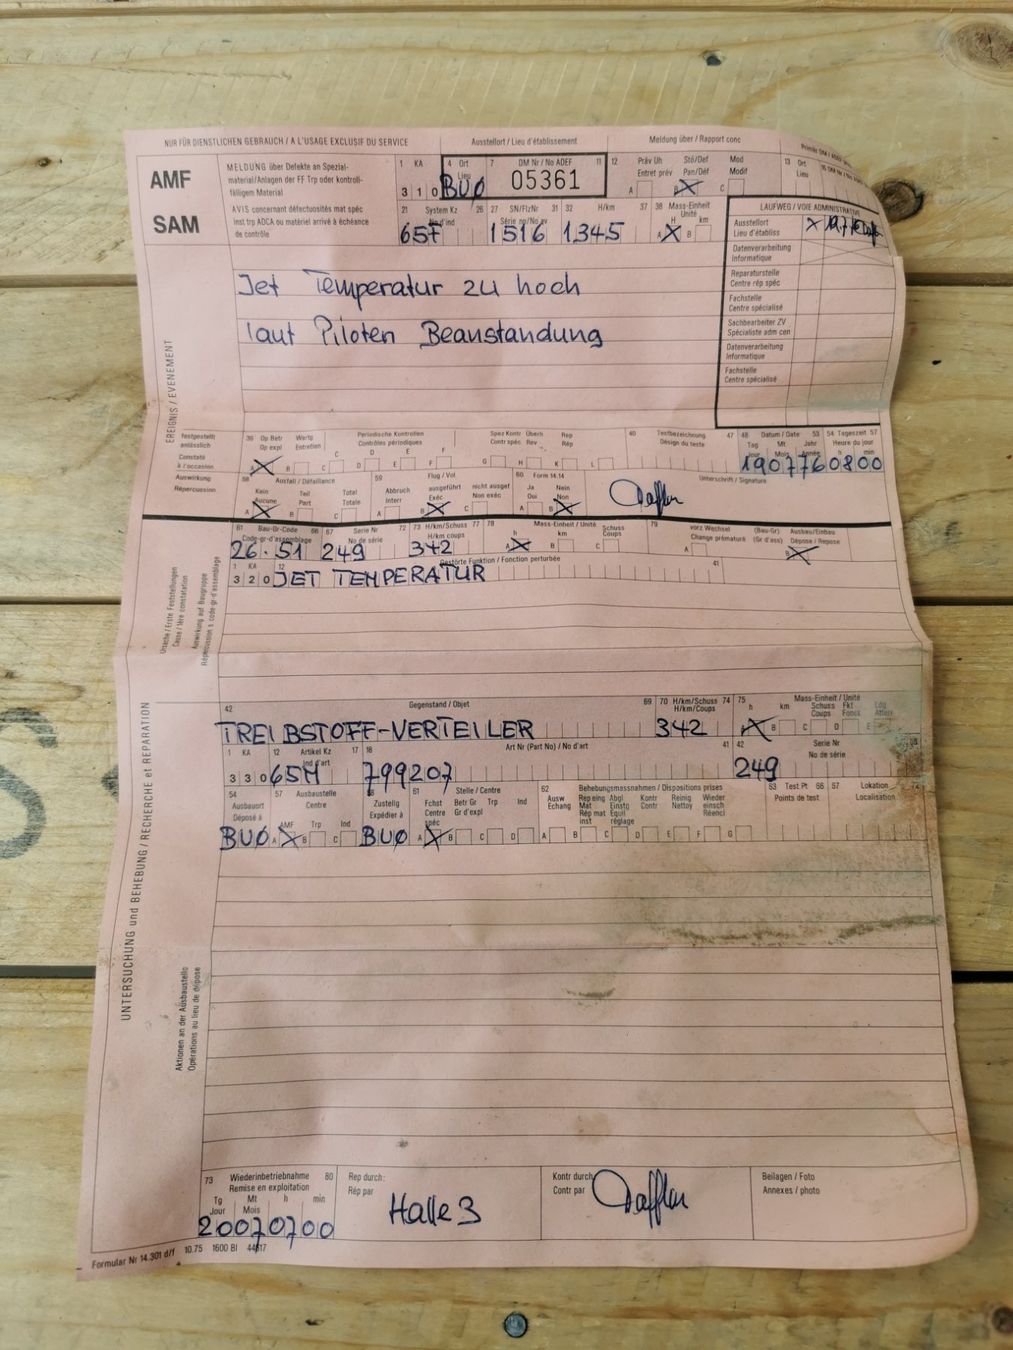 NUR FÜR DIENSTLICHEN GEBRAUCH / A L'USAGE EXCLUSIF DU SERVICE
Ausstellort / Lieu d'établissement
Meldung über / Rapport conc
AMF
SAM
MELDUNG über Defekte an Spezial-
material/Anlagen der FF Trp oder kontroll-
fälligem Material
AVIS concernant défectuosités mat spéc
inst trp ADCA ou matériel arrivé à échéance
de contrôle
1 KA
3 1 0
4 Ort Lieu
BUO
7 DM Nr / No ADEF 11
05361
12 Präv Uh Stö/Def Mod
Entret prév Pan/Déf Modif
A B X C
13 Ort
Lieu
21 System Kz 26 27 SN/FlzNr 31 32 H/km 37 38 Mass-Einheit
Unité
H km
65F 1516 1345 A X B
LAUFWEG / VOIE ADMINISTRATIVE
Ausstellort
Lieu d'établiss
X
Datenverarbeitung
Informatique
Reparaturstelle
Centre rép spéc
Fachstelle
Centre spécialisé
Sachbearbeiter ZV
Spécialiste adm cen
Datenverarbeitung
Informatique
Fachstelle
Centre spécialisé
EREIGNIS / EVENEMENT
Jet Temperatur zu hoch
laut Piloten Beanstandung
festgestellt
anlässlich
Constaté
à l'occasion
39 Op Betr Wartg
Op expl Entretien
Periodische Kontrollen
Contrôles périodiques
Spez Kontr Überh Rep
Contr spéc Rev Rép
40 Testbezeichnung 47
Désign du teste
48 Datum / Date 53 54 Tageszeit 57
Tag Mt Jahr Heure du jour
Jour Mois Année h min
A X B C D E F G H K L
190776 0800
Auswirkung
Répercussion
58 Ausfall / Défaillance
Kein Teil Total
Aucune Part Totale
A X B C
59 Flug / Vol
Abbruch ausgeführt nicht ausgef
Interr Exéc Non exéc
A B X C
60 Form 14.14
Ja Nein
Oui Non
A B X
Unterschrift / Signature
61 Bau-Gr-Code 66 67 Serie Nr 72 73 H/km/Schuss 77 78 Mass-Einheit / Unité 79
Code-gr-d'assemblage No de série H/km coups h km Schuss
Coups
26.51 249 342 A X B C
vorz Wechsel (Bau-Gr) Ausbau/Einbau
Change prématuré (Gr d'ass) Dépose / Repose
A B X
1 KA 12 Gestörte Funktion / Fonction perturbée 41
3 2 0 JET TEMPERATUR
Ursache / Erste Feststellungen
Cause / 1ère constatation
Auswirkung auf Baugruppe
Répercussion s code-gr-d'assemblage
UNTERSUCHUNG und BEHEBUNG / RECHERCHE et REPARATION
42 Gegenstand / Objet 69 70 H/km/Schuss 74 75 Mass-Einheit / Unité
H/km/Coups h km Schuss Fkt
Coups Fonct
TREIBSTOFF-VERTEILER 342 X B C D E
1 KA 12 Artikel Kz 17 18 Art Nr (Part No) / No d'art 41 42 Serie Nr
Ind d'art No de série
3 3 0 65M 799207 249
54 Ausbauort
Déposé à
57 Ausbaustelle
Centre
AMF Trp Ind
58 Zustellg
Expédier à
61 Stelle / Centre
Fchst Betr Gr Trp Ind
Centre Gr d'expl
spéc
62 Behebungsmassnahmen / Dispositions prises
Ausw Rep eing Abgl Kontr Reinig Wieder
Echang Mat Einstg Contr Nettoy einsch
Rép mat Equil Réencl
inst réglage
63 Test Pt 66
Points de test
67 Lokation
Localisation
BUO A X B C BUO A X B C D A B C D E F G
Aktionen an der Ausbaustelle
Opérations au lieu de dépose
73 Wiederinbetriebnahme 80
Remise en exploitation
Tg Mt h min
Jour Mois
20070700
Rep durch:
Rép par
Halle 3
Kontr durch
Contr par
Beilagen / Foto
Annexes / photo
Formular Nr 14.301 d/f 10.75 1600 Bl 44617